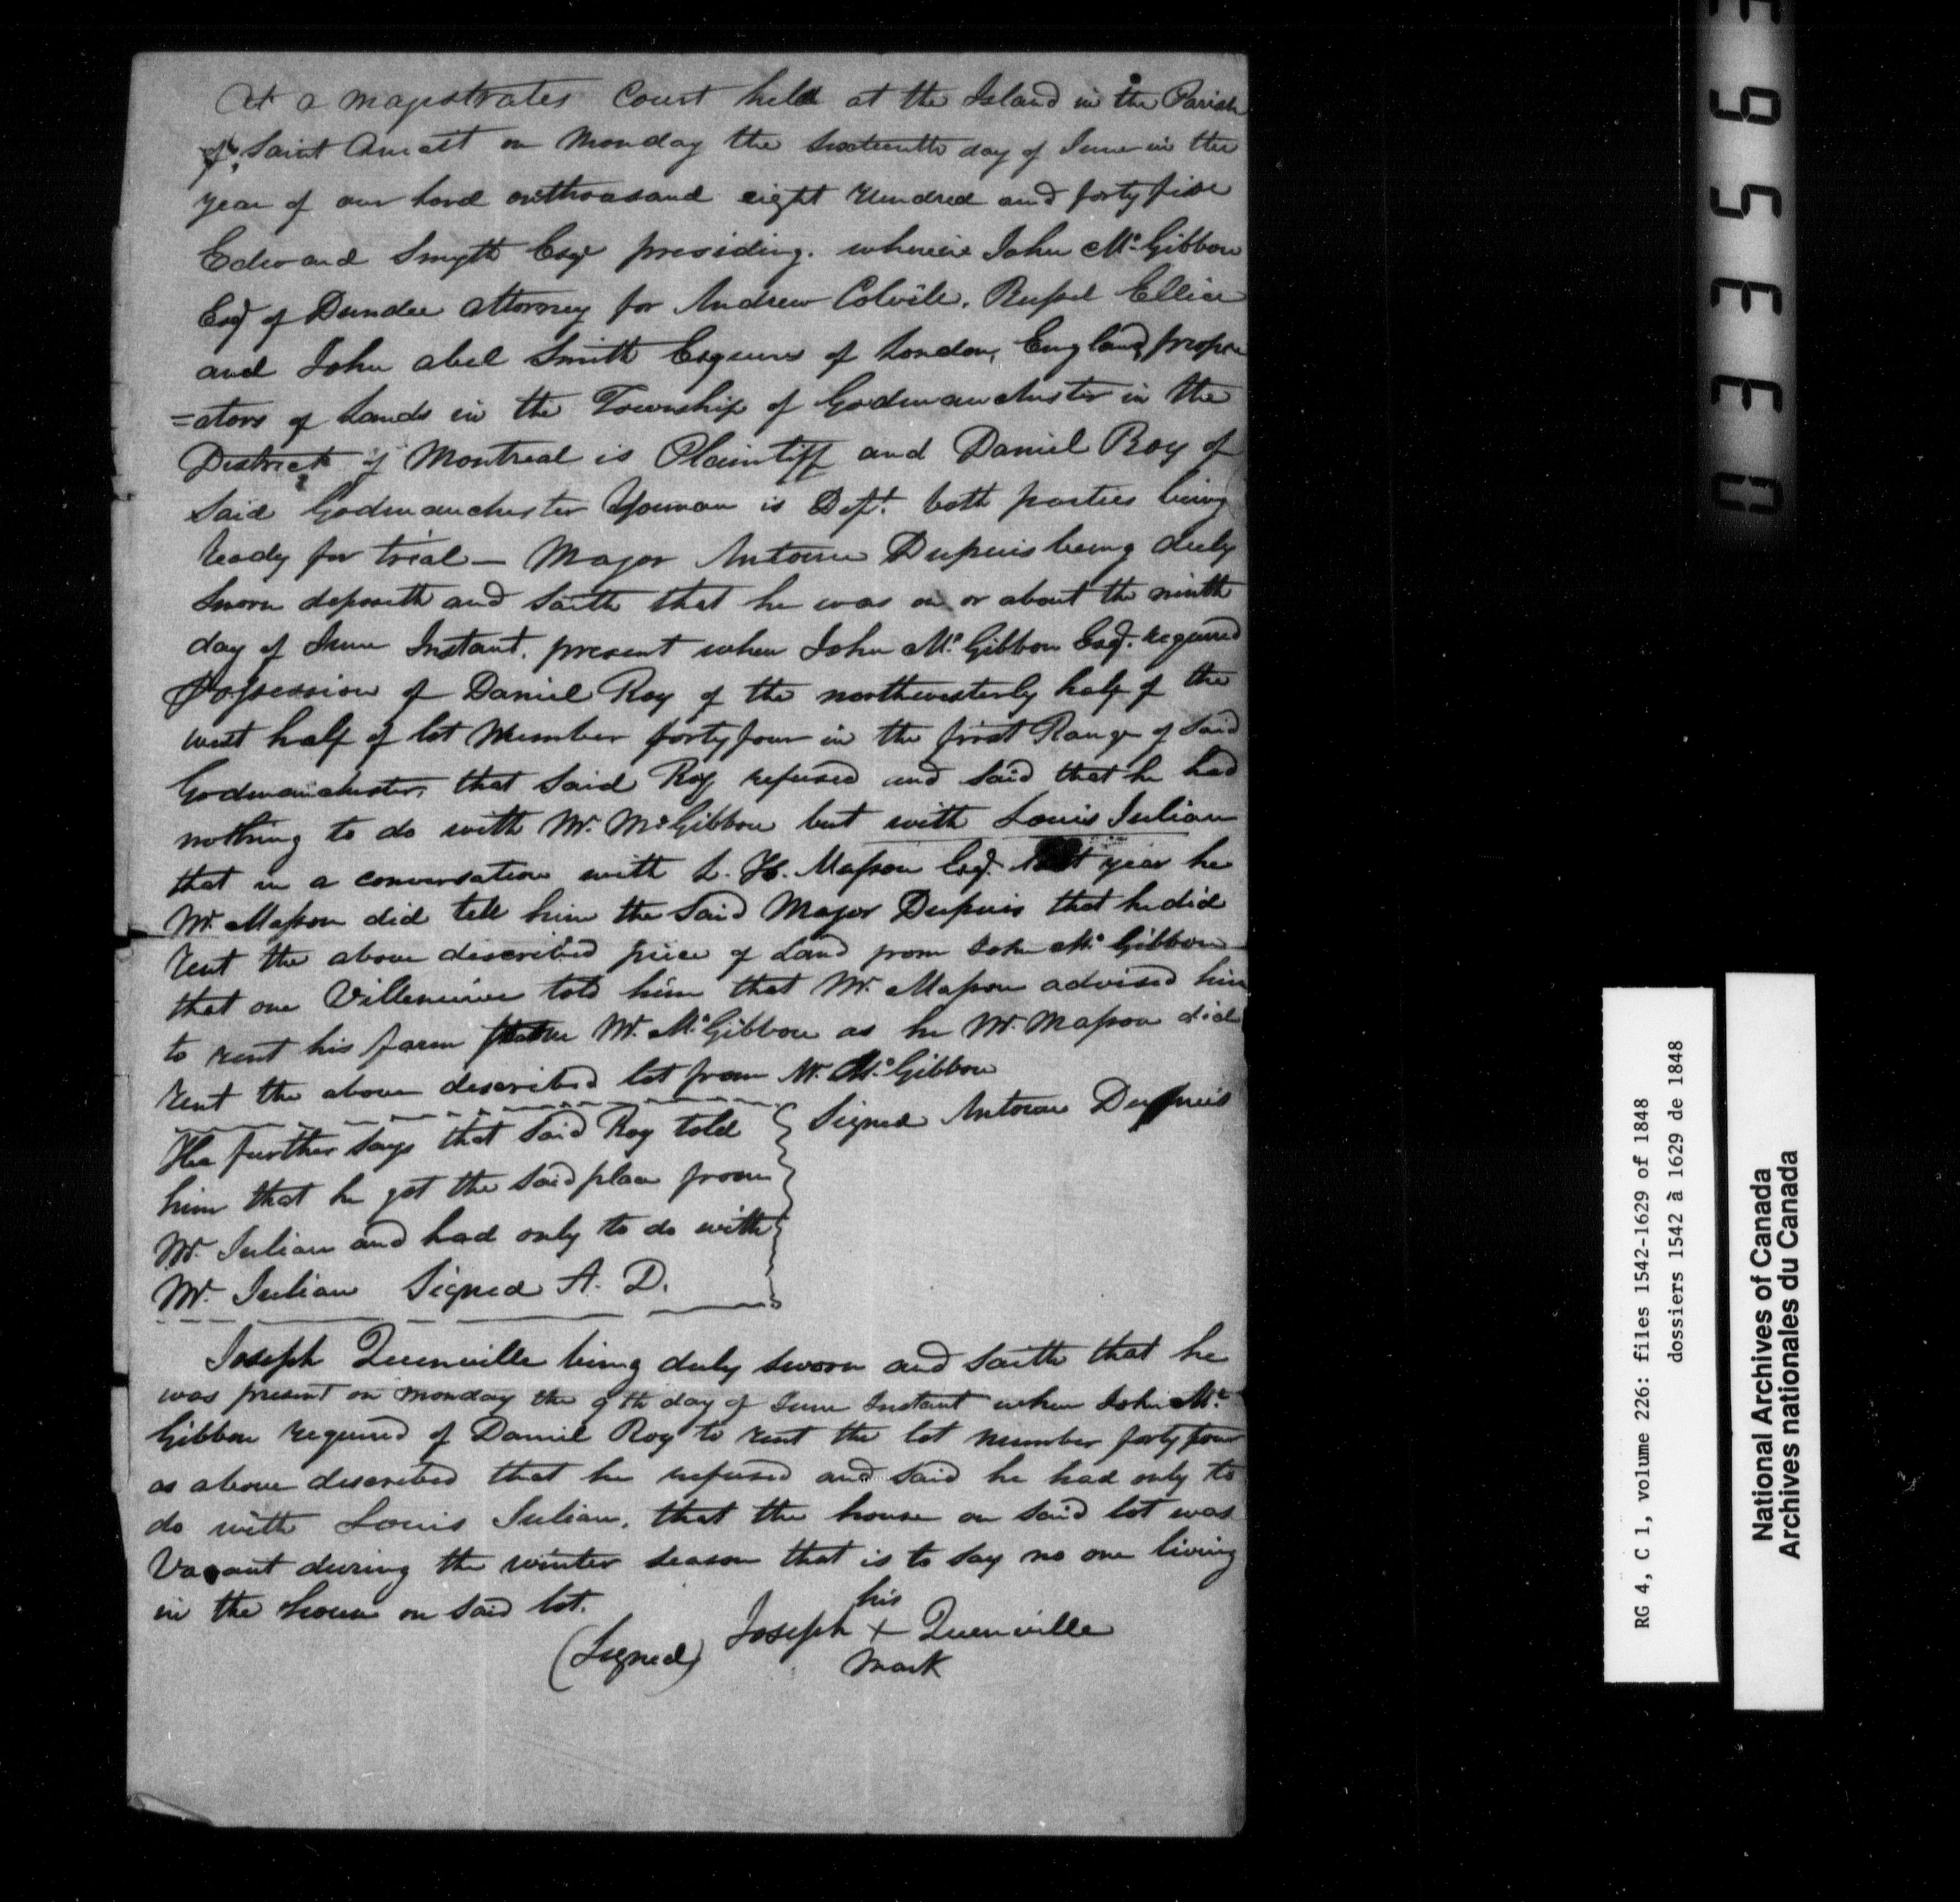 At a magistrates Court held at the Island in the Parish
of Saint Anicett on Monday the sixteenth day of June in the
year of our Lord onthousand eight Hundred and forty five
Edward Smyth Esqr presiding. wherein John Mc.Gibbon
Esq of Dundee Attorney for Andrew Colvile, Russel Ellice
and John Abel Smith Esquires of London, England, propri
=ators of Lands in the Township of Godmanchester in the
District of Montreal is Plaintiff and Daniel Roy of
Said Godmanchester Youman is Deft. both parties being
ready for trial — Major Antoine Dupuis being duly
Sworn deposeth and Saith that he was on or about the ninth
day of June Instant, present when John Mc.Gibbon Esq. required
Possession of Daniel Roy of the northwesterly half of the
west half of lot Number forty four in the first Range of Said
Godmanchester, that Said Roy refused and Said that he had
nothing to do with Mr. McGibbon but with Louis Julian
that in a conversation with L. H. Masson Esq. last year he
Mr. Masson did tell him the Said Major Dupuis that he did
Rent the above described piece of Land from John Mc.Gibbon
that one Villeneuve told him that Mr. Masson advised him
to rent his farm from Mr. Mc.Gibbon as he Mr. Masson did
Rent the above described lot from Mr. Mc.Gibbon
Signed Antoine Dupuis
He further Says that Said Roy told
him that he got the Said place from
Mr. Julian and had only to do with
Mr. Julian Signed A. D.
Joseph Quenville being duly sworn and Saith that he
was present on monday the 9th day of June Instant when John Mc.
Gibbon required of Daniel Roy to rent the lot number forty four
as above described that he refused and Said he had only to
do with Louis Julian, that the house on Said lot was
Vacant during the winter season that is to say no one living
in the house on Said lot.
his
(Signed) Joseph + Quenville
mark
03356
RG 4, C 1, volume 226: files 1542-1629 of 1848
dossiers 1542 à 1629 de 1848
National Archives of Canada
Archives nationales du Canada